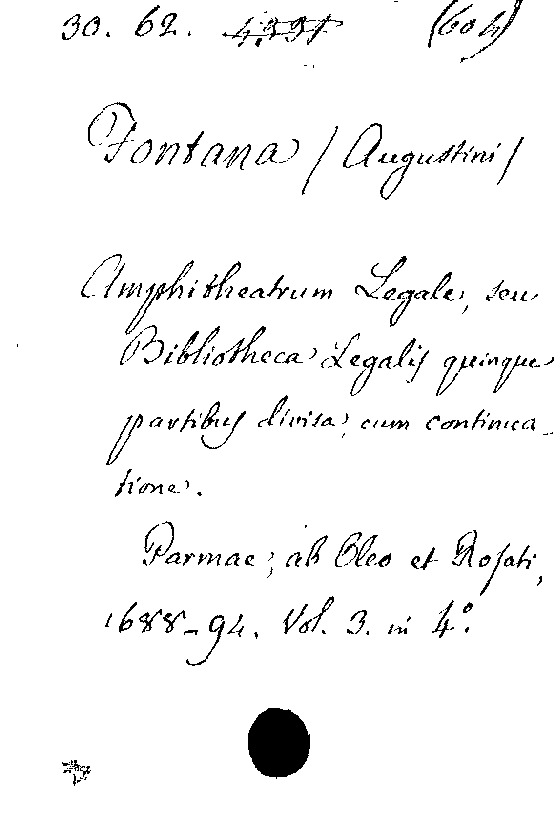 30. 62. (604)
Fontana / Augustini /
Amphitheatrum Legale, seu
Bibliotheca Legalis quinque
partibus divisa, cum continua-
tione.
Parmae; ab Oleo et Rosati,
1688-94. Vol. 3. in 4º.